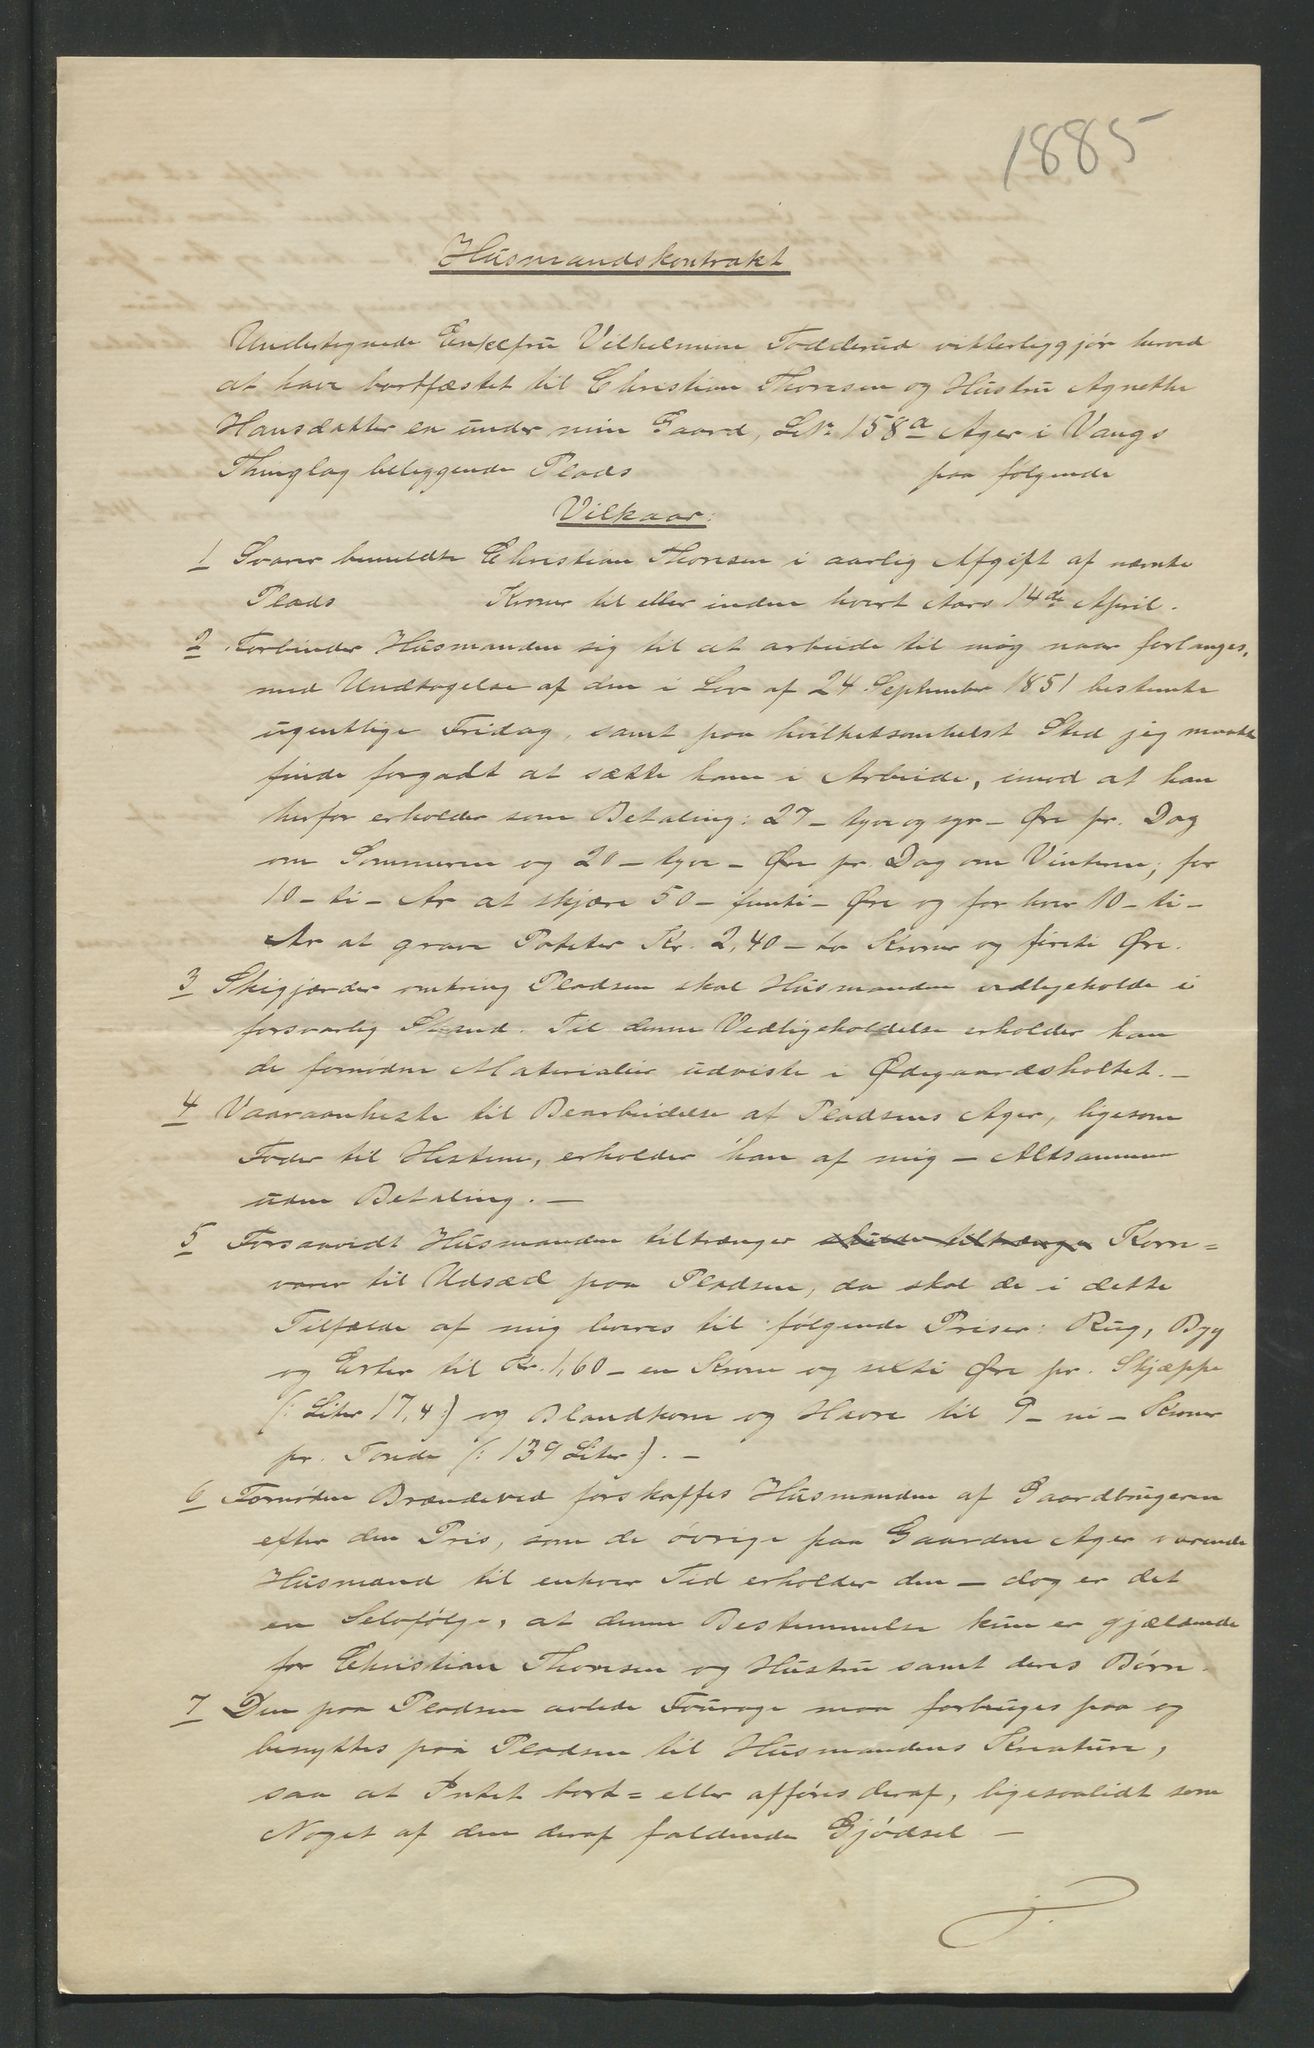 1885
Husmandskontrakt
Undertegnede Enkefru Vilhelmine Todderud vitterliggjør herved
at have bortfæstet til Christian Thoresen og Hustru Agnethe
Hansdatter en under min Gaard, Lnr. 158a Ager i Vangs
Thinglag beliggende Plads paa følgende
Vilkaar:
1 Svarer bemeldte Christian Thoresen i aarlig Afgift af nævnte
Plads Kroner til eller inden hvert Aars 14de April.
2 Forbinder Husmanden sig til at arbeide til mig naar forlanges,
med Undtagelse af den i Lov af 24 September 1851 bestemte
ugentlige Fridag, samt paa hvilketsomhelst Sted jeg maatte
finde forgodt at sætte ham i Arbeide, imod at han
herfor erholder som Betaling: 27 - tyve og syv - Øre pr. Dag
om Sommeren og 20 - tyve - Øre pr. Dag om Vinteren; for
10 - ti - Ar at skjære 50 - femti - Øre og for hver 10 - ti -
Ar at grave Poteter Kr. 2,40 - to Kroner og firti Øre.
3 Skigjærder omkring Pladsen skal Husmanden vedligeholde i
forsvarlig Stand. Til denne Vedligeholdelse erholder han
de fornødne Materialier udviste i Ødegaardsholtet. -
4 Vaaraanheste til Bearbeidelse af Pladsens Ager, ligesom
Foder til Hestene, erholder han af mig - Altsammen
uden Betaling. -
5 Forsaavidt Husmanden tiltrænger skulde tiltrænge Korn=
varer til Udsæd paa Pladsen, da skal de i dette
Tilfælde af mig leveres til følgende Priser: Rug, Byg
og Erter til Kr. 1,60 - en Krone og sexti Øre pr. Skjæppe
(: Liter 17,4 :) og Blandkorn og Havre til 9 - ni - Kroner
pr. Tønde (: 139 Liter :). -
6 Fornøden Brændeved forskaffes Husmanden af Gaardbrugeren
efter den Pris, som de øvrige paa Gaarden Ager værende
Husmænd til enhver Tid erholder den - dog er det
en Selvfølge, at denne Bestemmelse kun er gjældende
for Christian Thoresen og Hustru samt deres Børn.
7 Den paa Pladsen avlede Fourage maa forbruges paa og
benyttes paa Pladsen til Husmandens Kreature,
saa at Intet bort= eller afføres deraf, ligesaalidt som
Noget af den deraf faldende Gjødsel -